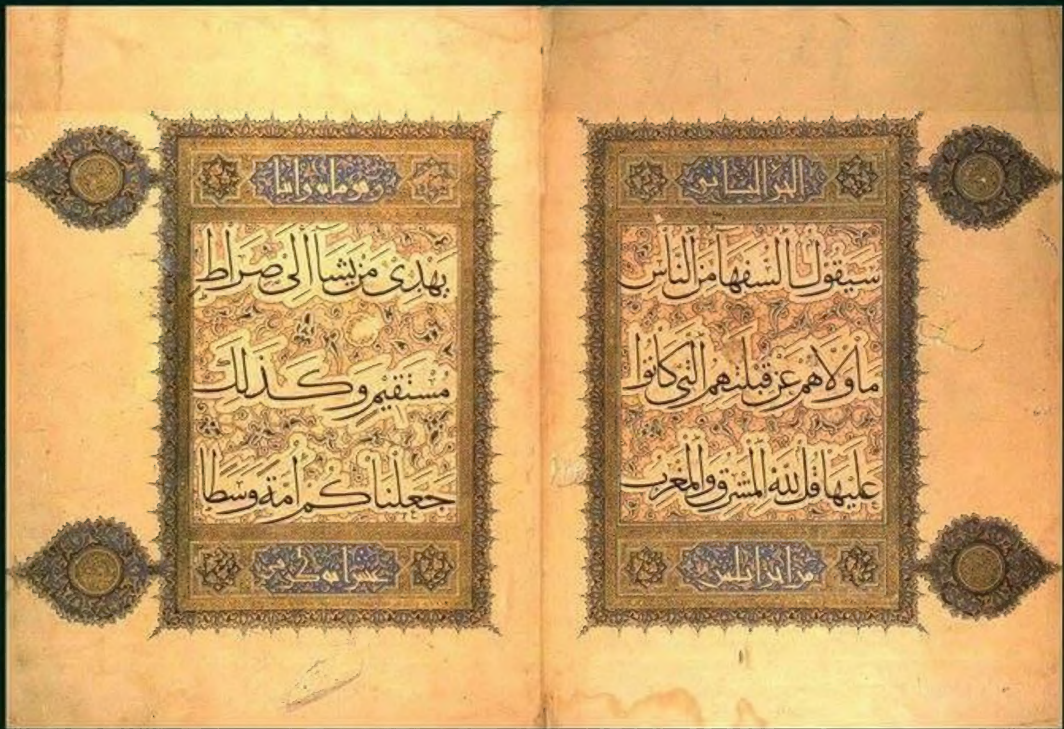 الجز الثانى
سيقول السفها من الناس
ما ولاهم عن قبلتهم التي كانوا
عليها قل لله المشرق والمغرب
من اجزا ثلثين
يهدى من يشا الى صراط
مستقيم وكذلك
جعلناكم امة وسطا